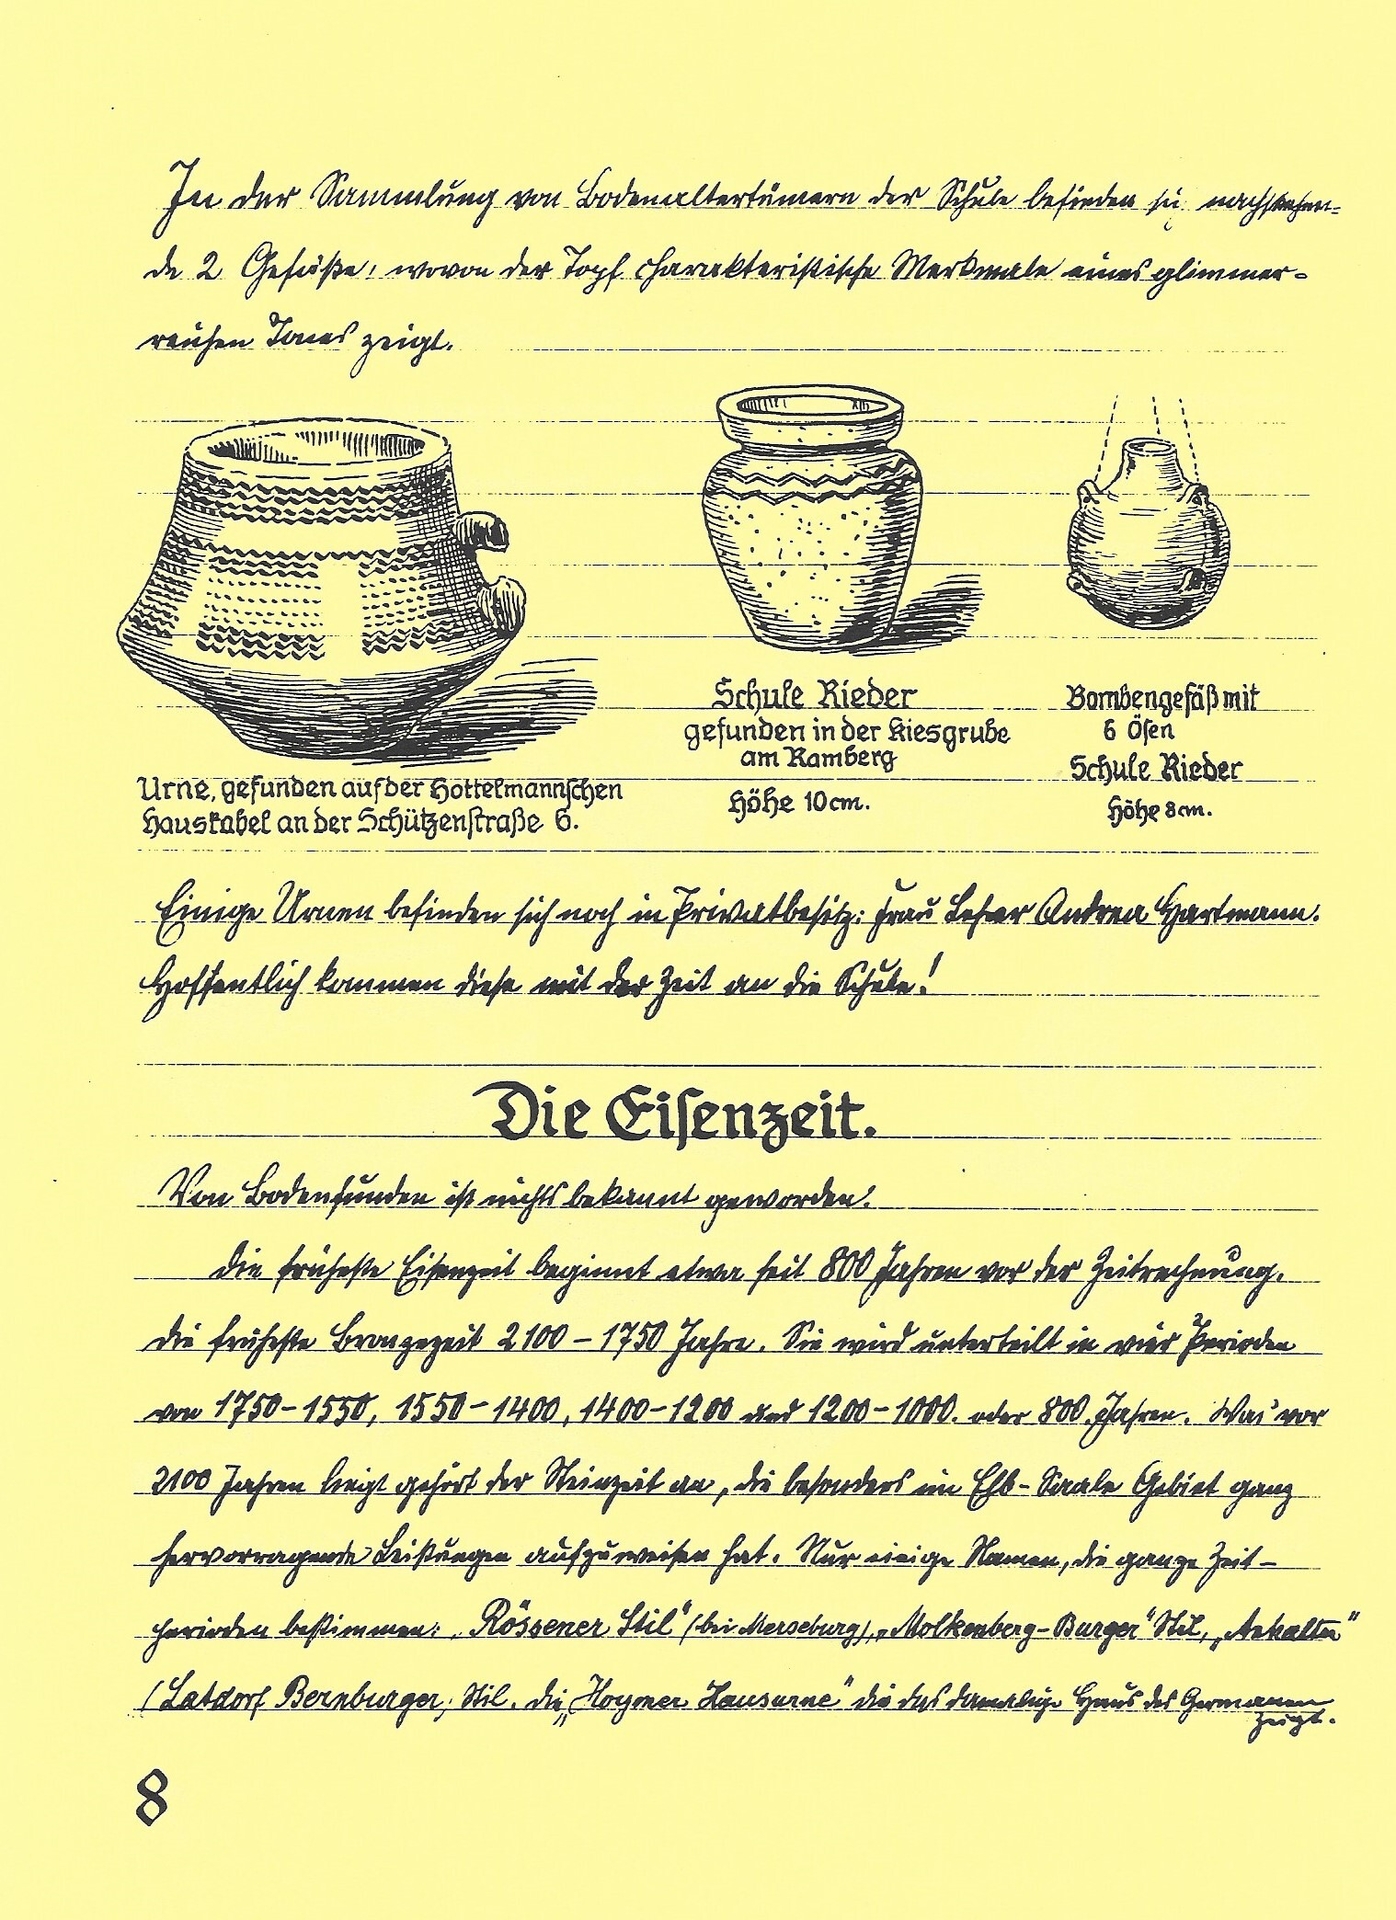 In der Sammlung von Bodenaltertümern der Schule befinden sich nachstehen-
de 2 Gefäße, wovon der Topf charakteristische Merkmale eines glimmer-
reichen Tones zeigt.
Schule Rieder
gefunden in der Kiesgrube
am Ramberg
Höhe 10 cm.
Bombengefäß mit
6 Ösen
Schule Rieder
Höhe 8 cm.
Urne, gefunden auf der Hottelmannschen
Hauskabel an der Schützenstraße 6.
Einige Urnen befinden sich noch in Privatbesitz: Frau Andrea Hartmann.
Hoffentlich kommen diese mit der Zeit an die Schule!
Die Eisenzeit.
Von Bodenfunden ist nichts bekannt geworden.
Die früheste Eisenzeit beginnt etwa seit 800 Jahren vor der Zeitrechnung.
Die früheste Bronzezeit 2100 – 1750 Jahre. Sie wird unterteilt in vier Perioden
von 1750 – 1550, 1550 – 1400, 1400 – 1200 und 1200 – 1000. oder 800 Jahren. Was vor
2100 Jahren liegt gehört der Steinzeit an, die besonders im Elb-Saale Gebiet ganz
hervorragende Leistungen aufzuweisen hat. Nur einige Namen, die ganze Zeit-
perioden bestimmen: „Rössener Stil" (bei Merseburg), „Molkenberg-Burger" Stil, „Anhalter"
(Latdorf Bernburger, Stil. die „Hoymer Hausurne" die das damalige Haus des Germanen
zeigt.
8